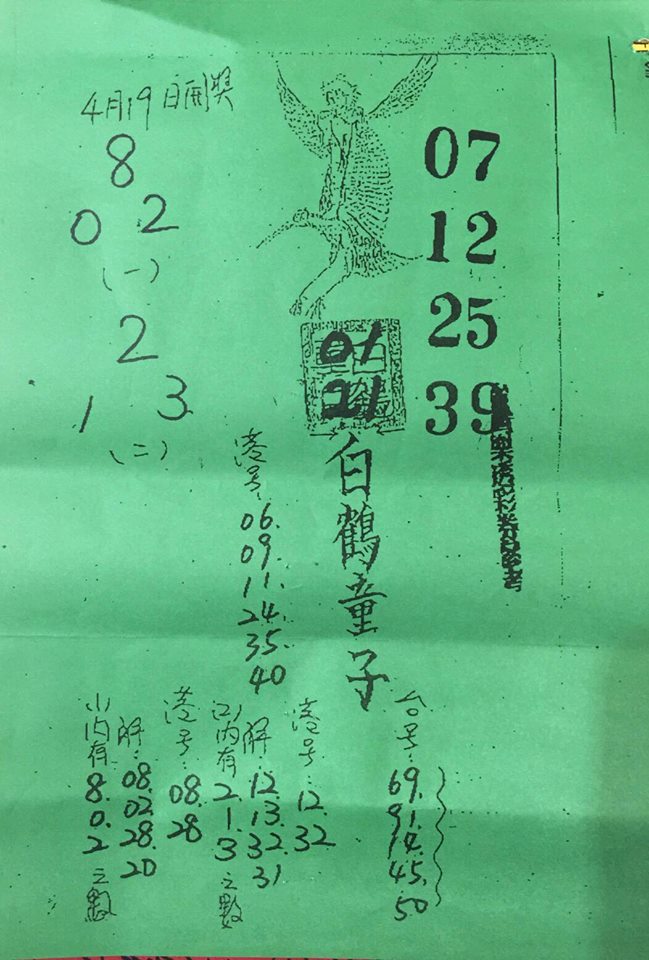 4月19日開獎
8
0 2
(一)
2
1 3
(二)
07
12
25
39
01
21
白鶴童子
港号:
06.
09.
11.
24.
35.
40
台号:
69.
91.
14.
45.
50
港号:
12.
32
解:
12.
13.
32.
31
(二)内有
2.
1.
3
之數
港号:
08.
28
解:
08.
02.
28.
20
(一)内有
8.
0.
2
之數